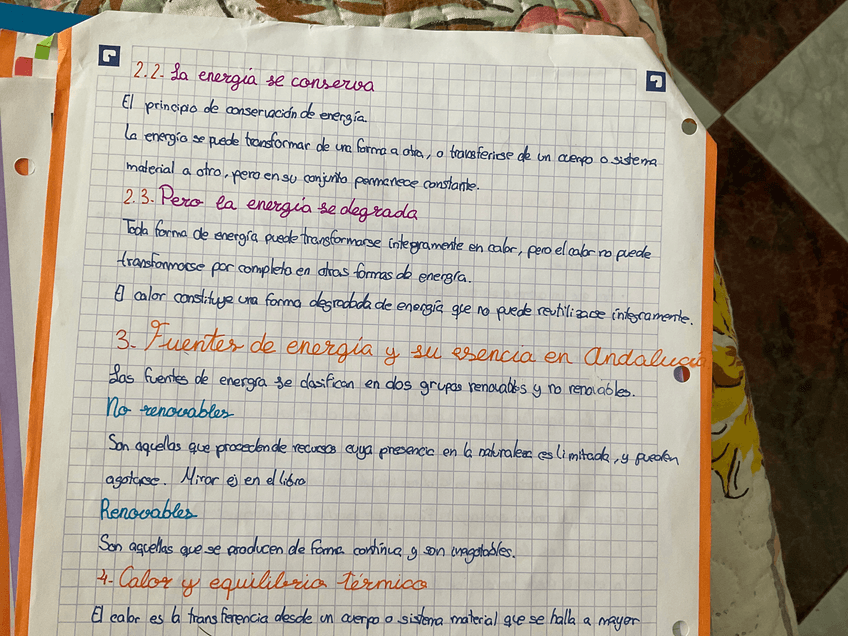 2.2. La energía se conserva
El principio de conservación de energía.
La energía se puede transformar de una forma a otra, o transferirse de un cuerpo o sistema
material a otro, pero en su conjunto permanece constante.
2.3. Pero la energía se degrada
Toda forma de energía puede transformarse íntegramente en calor, pero el calor no puede
transformarse por completo en otras formas de energía.
El calor constituye una forma degradada de energía que no puede reutilizarse íntegramente.
3. Fuentes de energía y su esencia en Andalucía
Las fuentes de energía se clasifican en dos grupos renovables y no renovables.
No renovables
Son aquellas que proceden de recursos cuya presencia en la naturaleza es limitada, y pueden
agotarse. Mirar ej en el libro
Renovables
Son aquellas que se producen de forma contínua y son inagotables.
4. Calor y equilibrio térmico
El calor es la transferencia desde un cuerpo o sistema material que se halla a mayor